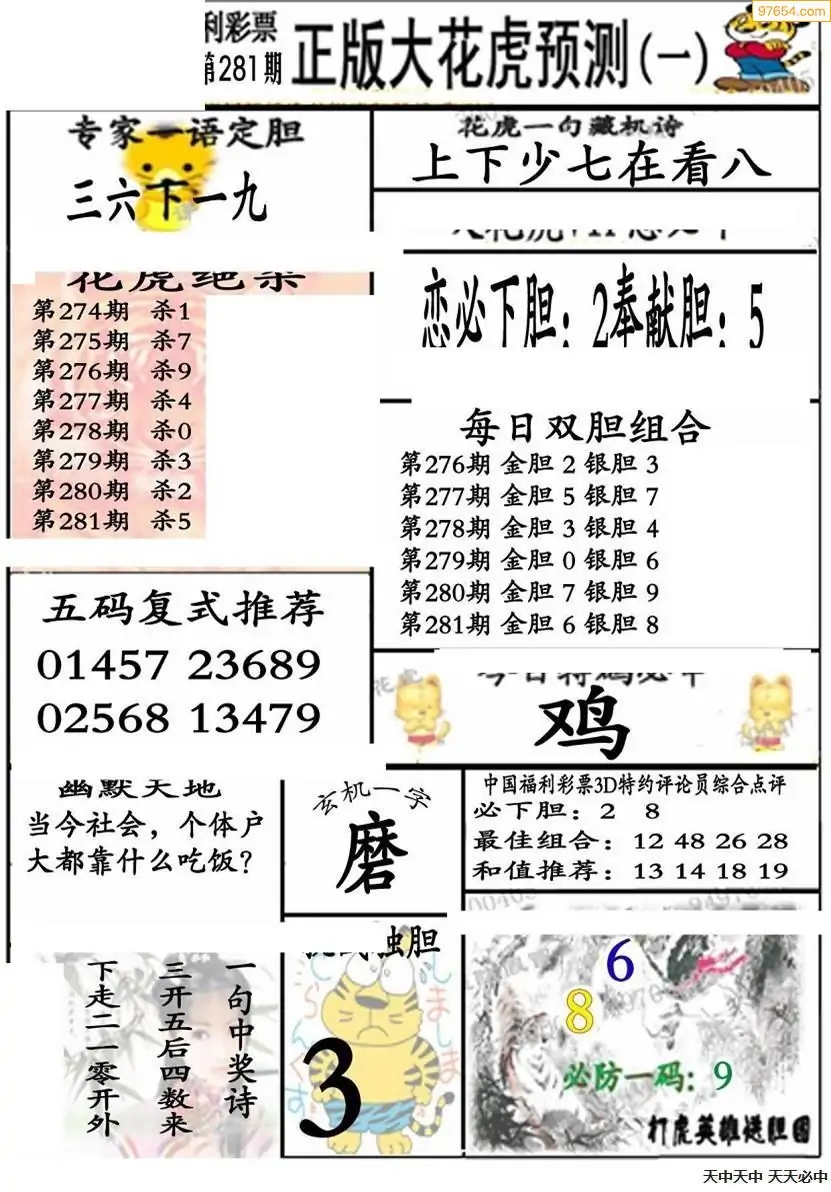 97654.com
利彩票
第281期
正版大花虎预测(一)
专家一语定胆
三六下一九
花虎一句藏机诗
上下少七在看八
花虎绝杀
第274期 杀1
第275期 杀7
第276期 杀9
第277期 杀4
第278期 杀0
第279期 杀3
第280期 杀2
第281期 杀5
恋必下胆：2奉献胆：5
每日双胆组合
第276期 金胆 2 银胆 3
第277期 金胆 5 银胆 7
第278期 金胆 3 银胆 4
第279期 金胆 0 银胆 6
第280期 金胆 7 银胆 9
第281期 金胆 6 银胆 8
五码复式推荐
01457 23689
02568 13479
花虎
鸡
幽默天地
当今社会，个体户
大都靠什么吃饭？
玄机一字
磨
中国福利彩票3D特约评论员综合点评
必下胆：2 8
最佳组合：12 48 26 28
和值推荐：13 14 18 19
一句中奖诗
三开五后四数来
下走二一零开外
独胆
3
6
8
必防一码：9
打虎英雄送胆图
天中天中 天天必中